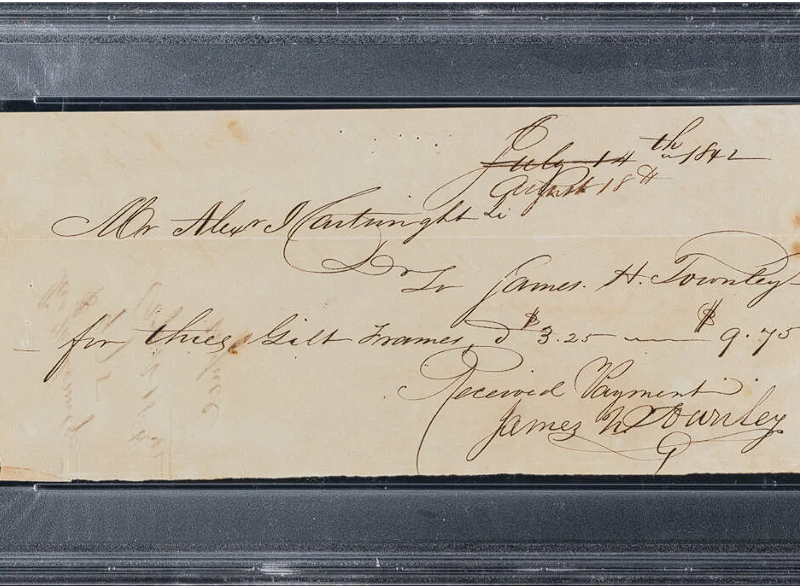 July 14th 1842
August 18th
Mr Alexr J Cartwright
Dr To James. H. Townley
for three Gilt Frames, @ $3.25 — $9.75
Received Payment
James H Townley